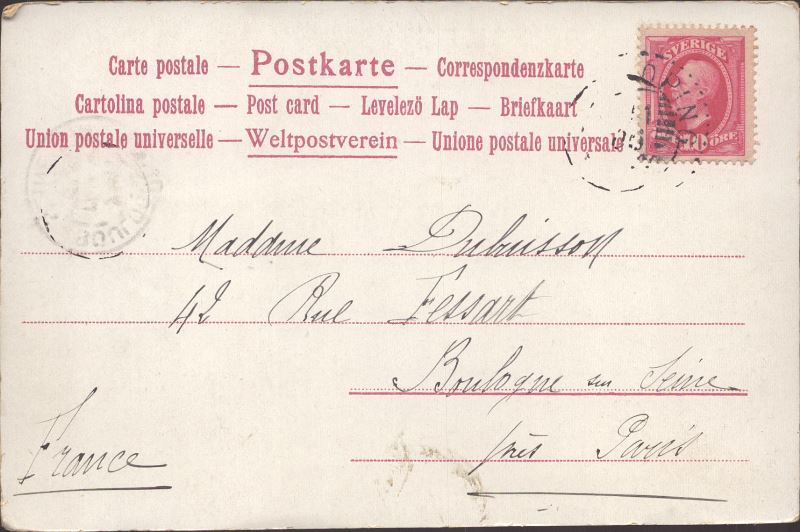 Carte postale — Postkarte — Correspondenzkarte
Cartolina postale — Post card — Levelezö Lap — Briefkaart
Union postale universelle — Weltpostverein — Unione postale universale
SVERIGE
ÖRE
Madame Dubuisson
42 Rue Fessart
Boulogne sur Seine
près Paris
France